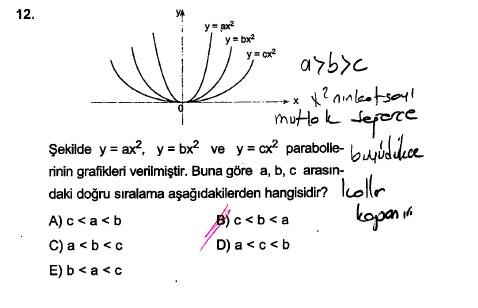 12.
y
y = ax²
y = bx²
y = cx²
x
0
a>b>c
x² nin katsayı
mutlak
büyüdükçe
kollr
kapanır
Şekilde y = ax², y = bx² ve y = cx² parabolle-
rinin grafikleri verilmiştir. Buna göre a, b, c arasın-
daki doğru sıralama aşağıdakilerden hangisidir?
A) c < a < b
B) c < b < a
C) a < b < c
D) a < c < b
E) b < a < c